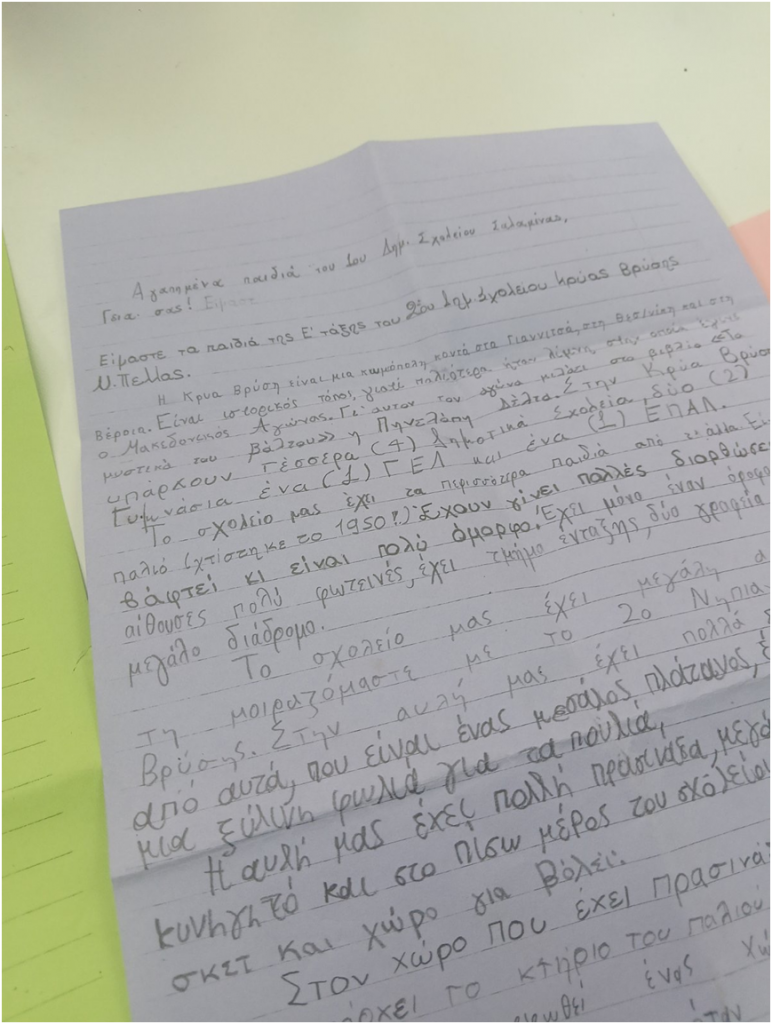 Αγαπημένα παιδιά του 1ου Δημ. Σχολείου Σαλαμίνας,
Γεια σας! Είμαστε
Είμαστε τα παιδιά της Ε' τάξης του 2ου Δημ σχολείου Κρύας Βρύσης
Ν. Πέλλας.
Η Κρύα Βρύση είναι μια κωμόπολη κοντά στα Γιαννιτσά, στη Θεσ/νίκη και στη
Βέροια. Είναι ιστορικός τόπος, γιατί παλιότερα ήταν λίμνη, στην οποία έγινε
ο Μακεδονικός Αγώνας. Γι' αυτόν τον αγώνα μιλάει στο βιβλίο «Τα
μυστικά του Βάλτου» η Πηνελόπη Δέλτα. Στην Κρύα Βρύση
υπάρχουν τέσσερα (4) Δημοτικά Σχολεία, δύο (2)
Γυμνάσια ένα (1) ΓΕΛ και ένα (1) ΕΠΑΛ.
Το σχολείο μας έχει τα περισσότερα παιδιά από τ' άλλα
παλιό (χτίστηκε το 1950!) Έχουν γίνει πολλές διορθώσε
βάφτεί κι είναι πολύ όμορφο. Έχει μόνο έναν όροφο
αίθουσες πολύ φωτεινές, έχει τμήμα ένταξης, δύο γραφεία
μεγάλο διάδρομο.
Το σχολείο μας έχει μεγάλη α
τη μοιραζόμαστε με το 2ο Νηπια
Βρύσης. Στην αυλή μας έχει πολλά δ
από αυτά, που είναι ένας μεγάλος πλάτανος, έ
μια ξύλινη φωλιά για τα πουλιά,
Η αυλή μας έχει πολλή πρασινάδα, μεγά
κυνηγητό και στο πίσω μέρος του σχολείου
σκετ και χώρο για βόλεϊ.
Στον χώρο που έχει πρασινά
το κτήριο του παλιού
ένας